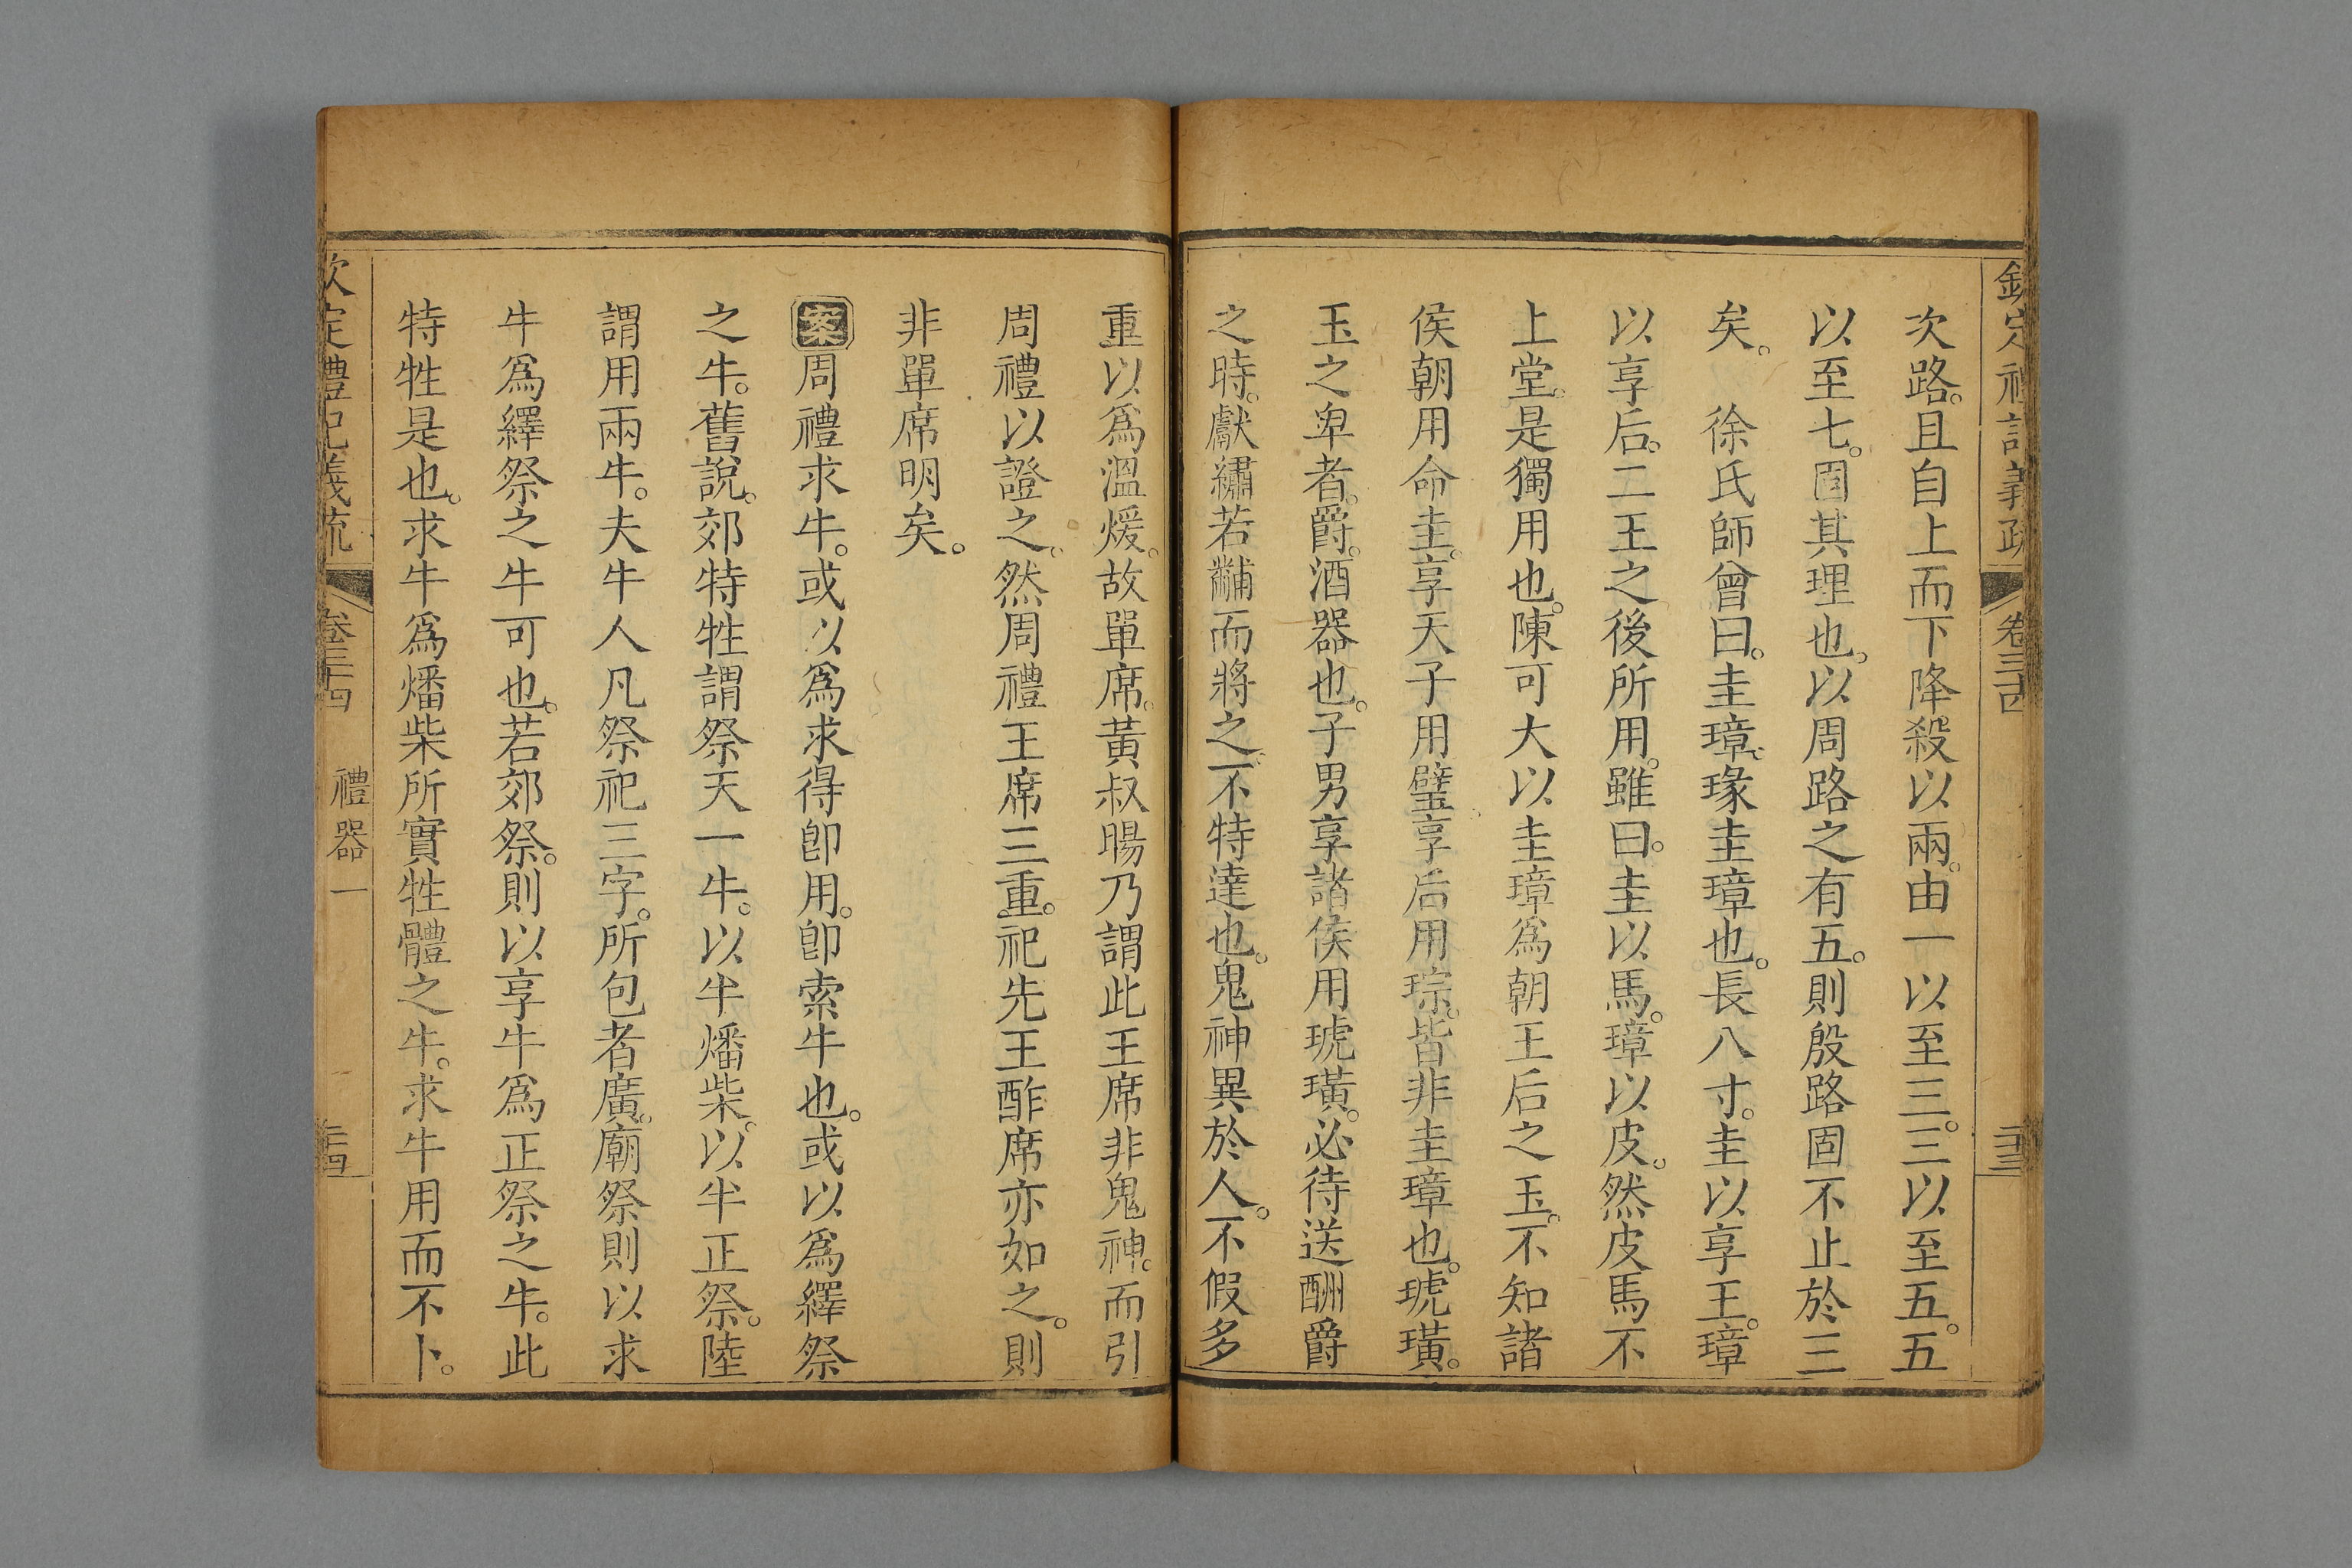 欽定禮記義疏 卷三十四 二十三
次路。且自上而下降殺以兩。由一以至三。三以至五。五
以至七。固其理也。以周路之有五。則殷路固不止於三
矣。 徐氏師曾曰。圭璋。瑑圭璋也。長八寸。圭以享王。璋
以享后。二王之後所用。雖曰。圭以馬。璋以皮。然皮馬不
上堂。是獨用也。陳可大以圭璋爲朝王后之玉。不知諸
侯朝用命圭。享天子用璧。享后用琮。皆非圭璋也。琥璜。
玉之卑者。爵。酒器也。子男享諸侯用琥璜。必待送酬爵
之時。獻繡若黼而將之。不特達也。鬼神異於人。不假多
重以爲溫煖。故單席。黃叔暘乃謂此王席非鬼神。而引
周禮以證之。然周禮王席三重。祀先王酢席亦如之。則
非單席明矣。
案周禮求牛。或以爲求得卽用。卽索牛也。或以爲繹祭
之牛。舊說。郊特牲謂祭天一牛。以半燔柴。以半正祭。陸
謂用兩牛。夫牛人凡祭祀三字。所包者廣。廟祭則以求
牛爲繹祭之牛可也。若郊祭。則以享牛爲正祭之牛。此
特牲是也。求牛爲燔柴所實牲體之牛。求牛用而不卜。
欽定禮記義疏 卷三十四 禮器一 二十四